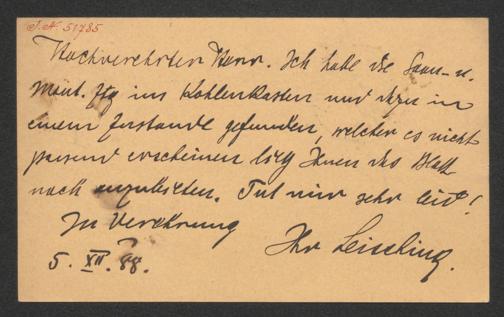 J.N. 51785
Hochverehrter Herr. Ich habe die Sonn- u.
Mont. Ztg ins Kohlenkasten und dazu in
einem Zustande gefunden, welcher es nicht
passend erscheinen ließ Ihnen das Blatt
noch anzubieten. Tut mir sehr leid!
In Verehrung
Ihr Leisching.
5. XII. 88.